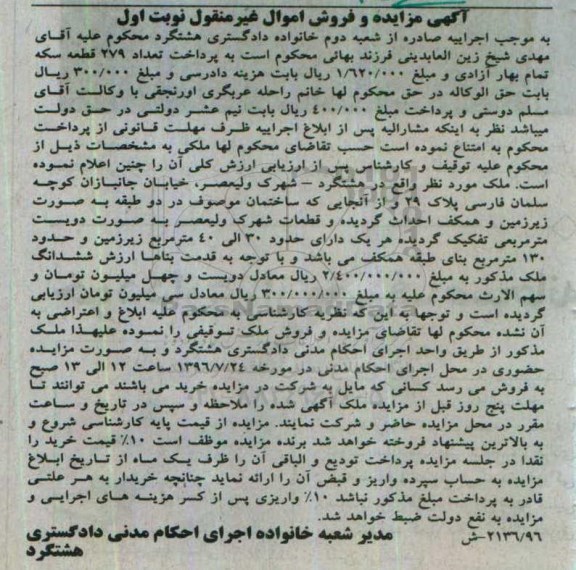 آگهی مزایده و فروش اموال غیرمنقول نوبت اول
به موجب اجراییه صادره از شعبه دوم خانواده دادگستری هشتگرد محکوم علیه آقای
مهدی شیخ زین العابدینی فرزند بهائی محکوم است به پرداخت تعداد ۲۷۹ قطعه سکه
تمام بهار آزادی و مبلغ ۱/۶۲۰/۰۰۰ ریال بابت هزینه دادرسی و مبلغ ۳۰۰/۰۰۰ ریال
بابت حق الوکاله در حق محکوم لها خانم راحله عربگری اورنجقی با وکالت آقای
مسلم دوستی و پرداخت مبلغ ۴۰۰/۰۰۰ ریال بابت نیم عشر دولتی در حق دولت
میباشد نظر به اینکه مشارالیه پس از ابلاغ اجراییه ظرف مهلت قانونی از پرداخت
محکوم به امتناع نموده است حسب تقاضای محکوم لها ملکی به مشخصات ذیل از
محکوم علیه توقیف و کارشناس پس از ارزیابی ارزش کلی آن را چنین اعلام نموده
است. ملک مورد نظر واقع در هشتگرد – شهرک ولیعصر، خیابان جانبازان کوچه
سلمان فارسی پلاک ۲۹ و از آنجایی که ساختمان موصوف در دو طبقه به صورت
زیرزمین و همکف احداث گردیده و قطعات شهرک ولیعصر به صورت دویست
مترمربعی تفکیک گردیده هر یک دارای حدود ۳۰ الی ۴۰ مترمربع زیرزمین و حدود
۱۳۰ مترمربع بنای طبقه همکف می باشد و با توجه به قدمت بناها ارزش ششدانگ
ملک مذکور به مبلغ ۲/۴۰۰/۰۰۰/۰۰۰ ریال معادل دویست و چهل میلیون تومان و
سهم الارث محکوم علیه به مبلغ ۳۰۰/۰۰۰/۰۰۰ ریال معادل سی میلیون تومان ارزیابی
گردیده است و توجها به این که نظریه کارشناسی به محکوم علیه ابلاغ و اعتراضی به
آن نشده محکوم لها تقاضای مزایده و فروش ملک توقیفی را نموده علیهذا ملک
مذکور از طریق واحد اجرای احکام مدنی دادگستری هشتگرد و به صورت مزایده
حضوری در محل اجرای احکام مدنی در مورخه ۱۳۹۶/۷/۲۴ ساعت ۱۲ الی ۱۳ صبح
به فروش می رسد کسانی که مایل به شرکت در مزایده خرید می باشند می توانند تا
مهلت پنج روز قبل از مزایده ملک آگهی شده را ملاحظه و سپس در تاریخ و ساعت
مقرر در محل مزایده حاضر و شرکت نمایند. مزایده از قیمت پایه کارشناسی شروع و
به بالاترین پیشنهاد فروخته خواهد شد برنده مزایده موظف است ۱۰٪ قیمت خرید را
نقدا در جلسه مزایده پرداخت تودیع و الباقی آن را ظرف یک ماه از تاریخ ابلاغ
مزایده به حساب سپرده واریز و قبض آن را ارائه نماید چنانچه خریدار به هر علتی
قادر به پرداخت مبلغ مذکور نباشد ۱۰٪ واریزی پس از کسر هزینه های اجرایی و
مزایده به نفع دولت ضبط خواهد شد.
۲۱۳۶/۹۶-ش مدیر شعبه خانواده اجرای احکام مدنی دادگستری
هشتگرد